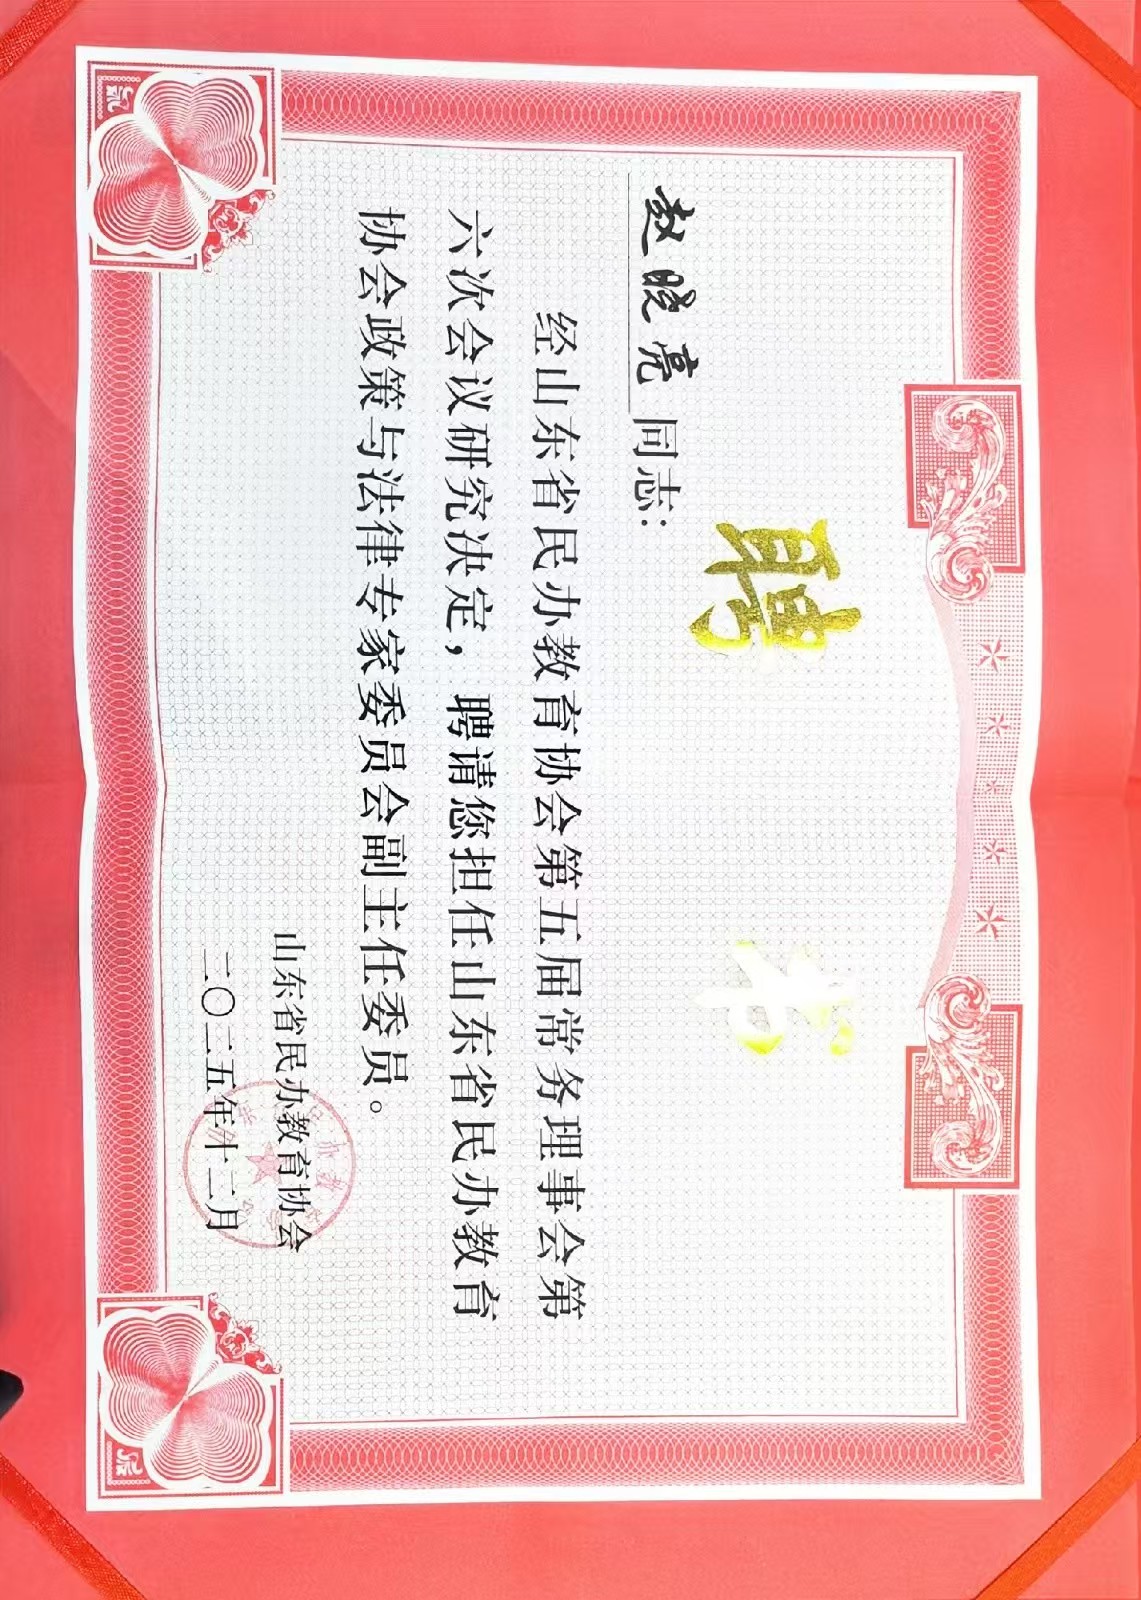 聘书
赵晓亮同志:
经山东省民办教育协会第五届常务理事会第
六次会议研究决定，聘请您担任山东省民办教育
协会政策与法律专家委员会副主任委员。
山东省民办教育协会
二〇二五年十二月